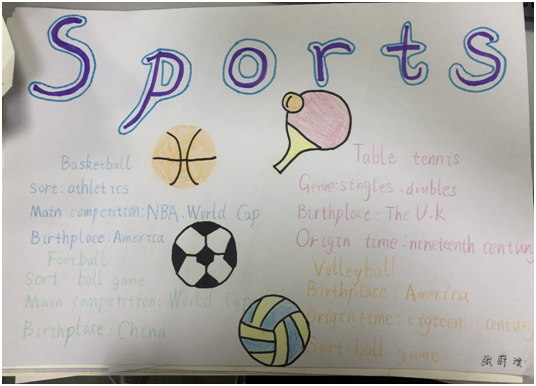 Sports
Basketball
Sort: athletics
Main competition: NBA. World Cap
Birthplace: America
Football
Sort: ball game
Main competition: World Cap
Birthplace: China
Table tennis
Genre: singles. doubles
Birthplace: The U.K
Origin time: nineteenth century
Volleyball
Birthplace: America
Origin time: eigteen century
Sort: ball game
张蔚